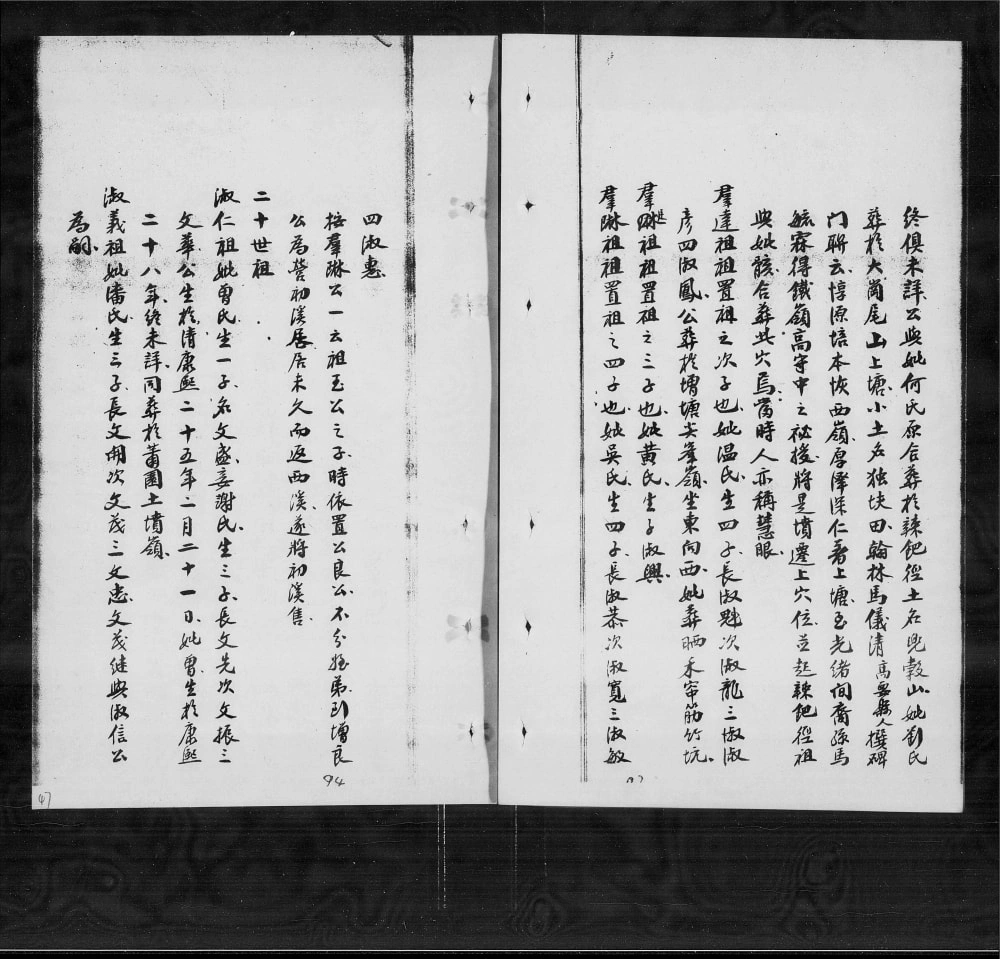 終俱未詳公與妣何氏原合葬於辣飽徑土名兜穀山妣劉氏
葬於大崗尾山上塘小土名独块田翰林馬儀清高要縣人撰碑
门聯云惇原培本恢西嶺厚澤深仁着上塘至光绪间裔孫馬
毓霖得鐵嶺高守中之祕後將是墳遷上穴位並起辣飽徑祖
與妣骸合葬此穴焉當時人亦稱慧眼
羣達祖祖置祖之次子也妣温氏生四子長淑魁次淑龍三淑淑
彦四淑鳳公葬於增塘尖峯嶺坐東向西妣葬晒禾帘筋竹坑
羣琎祖祖置祖之三子也妣黄氏生子淑興
羣琳祖祖置祖之四子也妣吴氏生四子長淑恭次淑寬三淑敏
四淑惠
按羣琳公一云祖玉公之子時依置公良公不分姪弟到增良
公為營初溪居居未久而返西溪遂將初溪售
二十世祖
淑仁祖妣曾氏生一子名文盛妾謝氏生三子長文先次文振三
文華公生於清康熙二十五年二月二十一日妣曾生於康熙
二十八年終未詳同葬於莆園土墳嶺
淑義祖妣潘氏生三子長文開次文茂三文忠文茂继與淑信公
為嗣
94
47